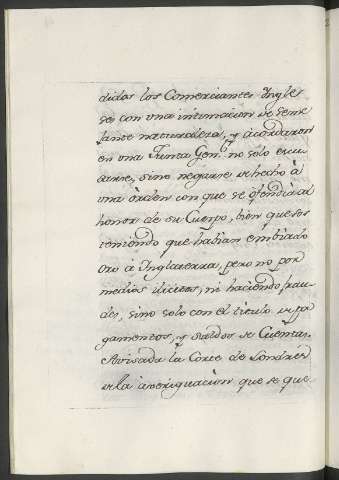 didos los Comerciantes Ingle-
ses con una intimacion de seme-
jante naturaleza, y acordaron
en una Junta Gen.l no solo escu-
sarse, sino negarse de hecho à
una òrden con que se ofendia al
honor de su Cuerpo, bien que sos
teniendo que habian embiado
oro à Inglaterra, pero no por
medios ilicitos, ni haciendo frau-
des, sino solo con el titulo de pa
gamentos, y saldos de Cuentas.
Avisada la Corte de Londres
de la averiguacion que se que-